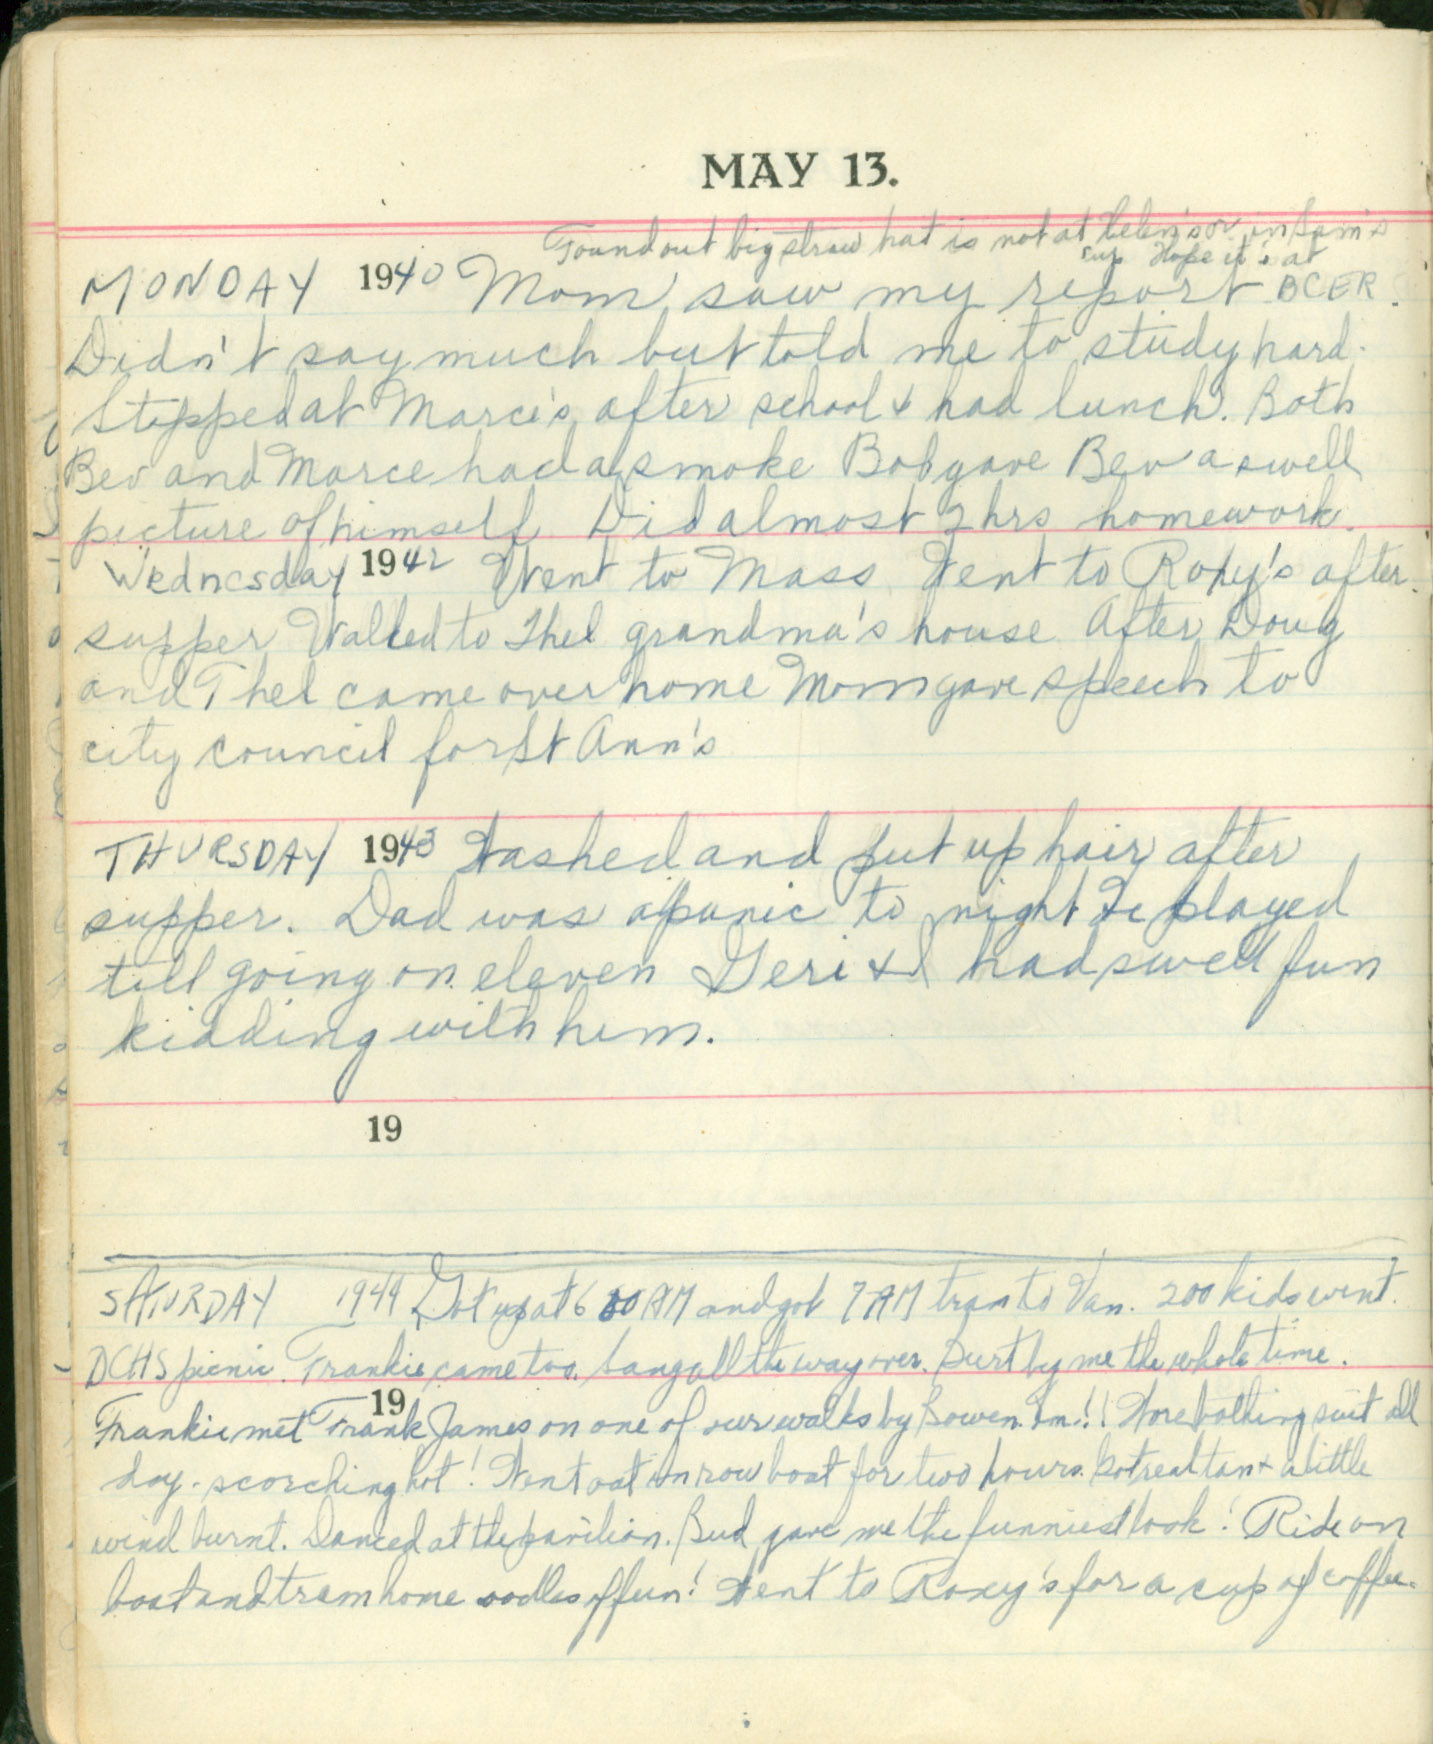 MAY 13.
Found out big straw hat is not at Helen's or in Sam's
car Hope it's at
MONDAY 1940 Mom saw my report BCER.
Didn't say much but told me to study hard.
Stopped at Marce's after school & had lunch. Both
Bev and Marce had a smoke Bob gave Bev a swell
picture of himself. Did almost 2 hrs homework.
Wednesday 1942 Went to Mass. Went to Roxy's after
supper Walked to Thel grandma's house After Doug
and Thel came over home Mom gave speech to
city council for St Ann's
THURSDAY 1943 Washed and put up hair after
supper. Dad was a panic to night We played
till going on eleven Geri & I had swell fun
kidding with him.
19
SATURDAY 1944 Got up at 6 AM and got 7 AM tram to Van. 200 kids went.
DCHS picnic. Frankie came too. Sang all the way over. Burt by me the whole time.
19
Frankie met Frank James on one of our walks by Bowen Inn!! Wore bathing suit all
day - scorching hot! Went out in row boat for two hours. Got real tan & a little
wind burnt. Danced at the pavilion. Bud gave me the funniest look! Ride on
boat and tram home oodles of fun! Went to Roxy's for a cup of coffee.